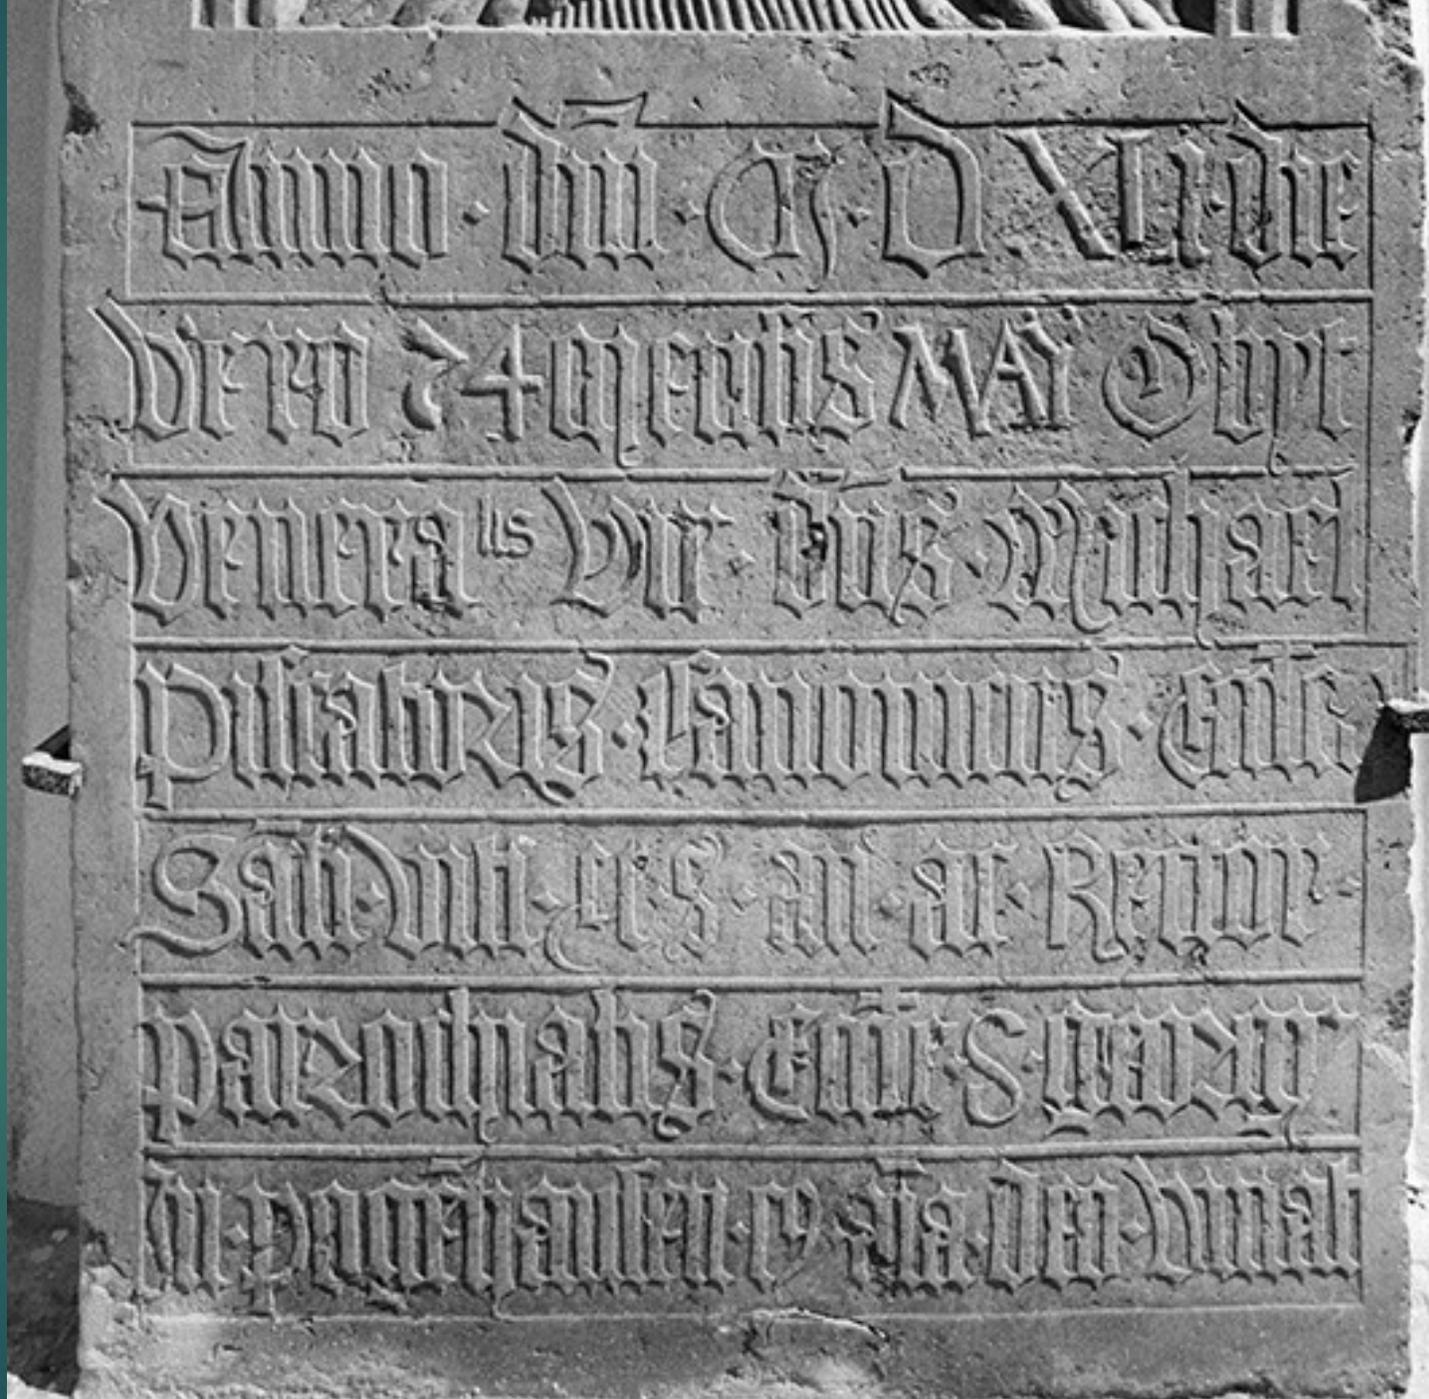 Anno · dñi · M · D XLI · die
vero 24 Mensis MAŸ Obyt
Venera^lis vir · dñs · Michael
piscatoris · Canonicus · Eccl̄e
Sācti · viti · et · S · an · ac · Rector ·
parochialis · Eccl̄e · S · georgy
in · cuius · aīa · deo · vivat